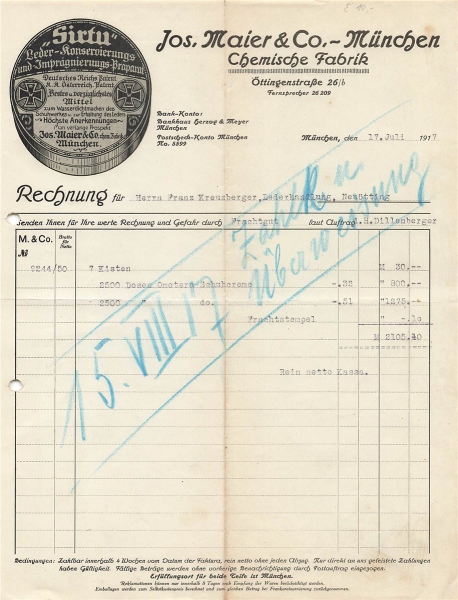 "Sirtu"
Leder-Konservierungs
und Imprägnierungs-Präparat
Deutsches Reichs Patent
K.K. Österreich. Patent.
Bestes u. vorzüglichstes
Mittel
zum Wasserdichtmachen des
Schuhwerkes u. zur Erhaltung des Leders
Höchste Anerkennungen
Man verlange Prospekt
Jos. Maier & Co. chem. Fabrik
München.
Jos. Maier & Co.-München
Chemische Fabrik
Öttingenstraße 26/b
Fernsprecher 26 209
Bank-Konto:
Bankhaus Herzog & Meyer
München
Postscheck-Konto München
No. 5899
München, den 17. Juli 1917
Rechnung für Herrn Franz Kreuzberger, Lederhandlung, Neuötting
Senden Ihnen für Ihre werte Rechnung und Gefahr durch Frachtgut laut Auftrag H. Dillenberger
M. & Co.
Brutto für Netto
No
9244/50 7 Kisten M 30.--
2500 Dosen Schuhcreme -.32 " 800.--
2500 " do. -.51 " 1275.--
Frachtstempel " -.10
M 2105.10
Rein netto Kassa.
15. VIII 17
Überweisung
Bedingungen: Zahlbar innerhalb 4 Wochen vom Datum der Faktura, rein netto ohne jeden Abzug. Nur direkt an uns geleistete Zahlungen
haben Gültigkeit. Fällige Beträge werden ohne vorherige Benachrichtigung durch Postauftrag eingezogen.
Erfüllungsort für beide Teile ist München.
Reklamationen können nur innerhalb 8 Tagen nach Empfang der Waren berücksichtigt werden.
Emballagen werden zum Selbstkostenpreis berechnet und zum gleichen Betrag bei Frankozusendung zurückgenommen.